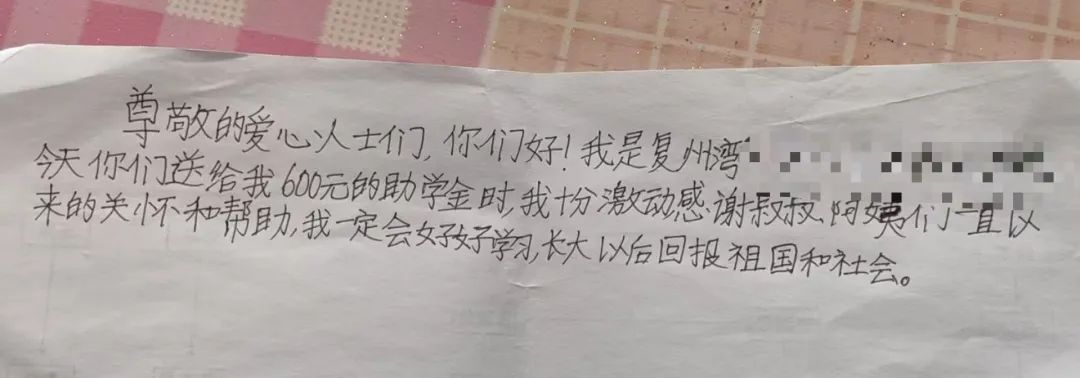 尊敬的爱心人士们,你们好!我是复州湾
今天你们送给我600元的助学金时,我十分激动感谢叔叔、阿姨们一直以
来的关怀和帮助,我一定会好好学习,长大以后回报祖国和社会。